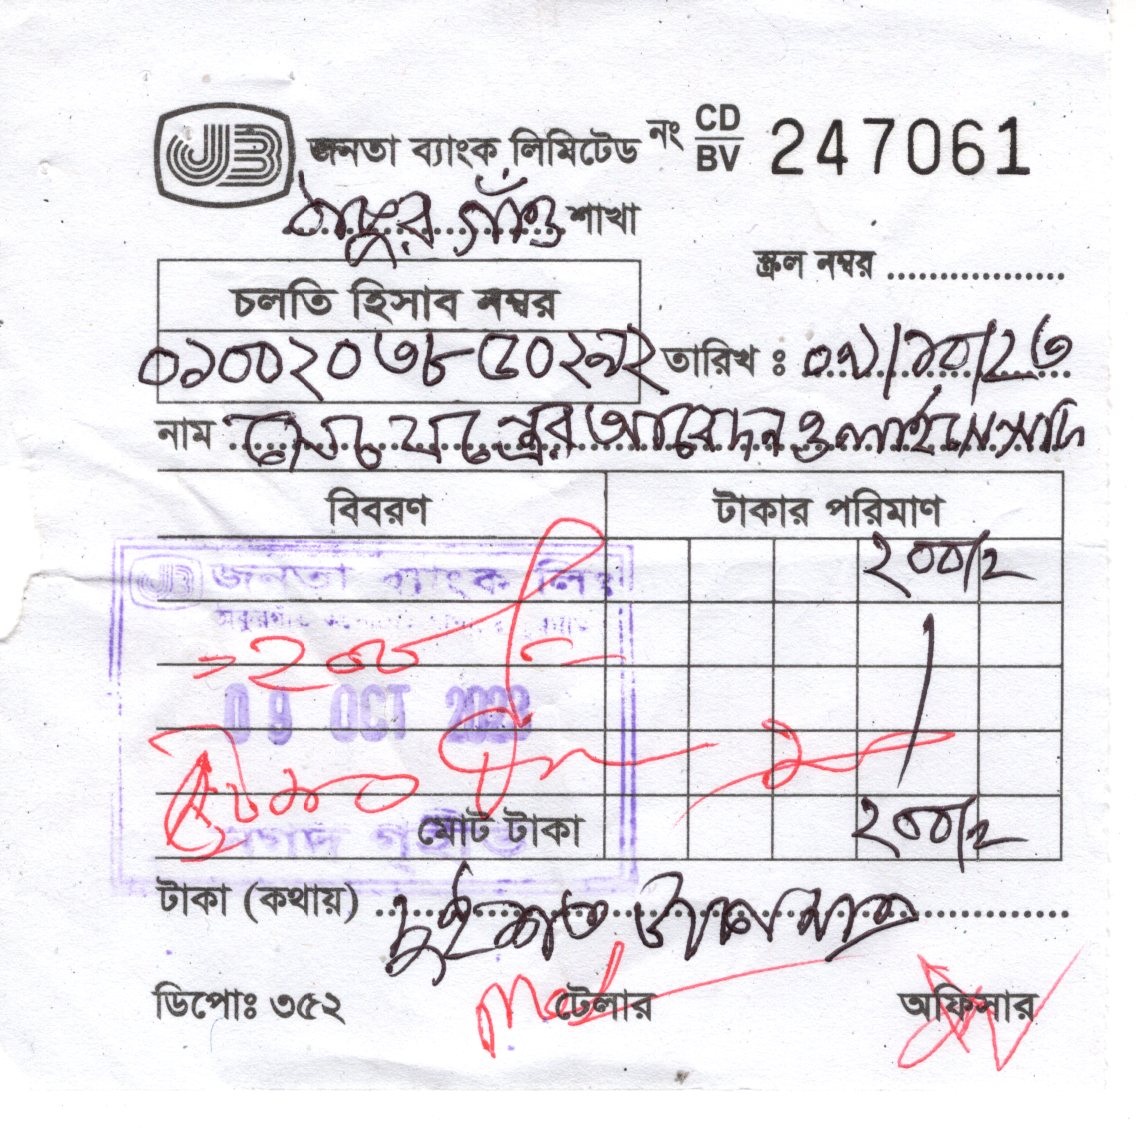 JB জনতা ব্যাংক লিমিটেড নং CD/BV 247061
ঠাকুরগাঁও শাখা
স্ক্রল নম্বর
চলতি হিসাব নম্বর
০১০০২০৩৮৫০২৯২ তারিখ : ০৯/১০/২৩
নাম আবেদন ও লাইসেন্স
বিবরণ টাকার পরিমাণ
২০০/=
JB জনতা ব্যাংক লিঃ
= ২০০
09 OCT 2023
মোট টাকা ২০০/=
টাকা (কথায়) দুইশত টাকা মাত্র
ডিপোঃ ৩৫২ টেলার অফিসার